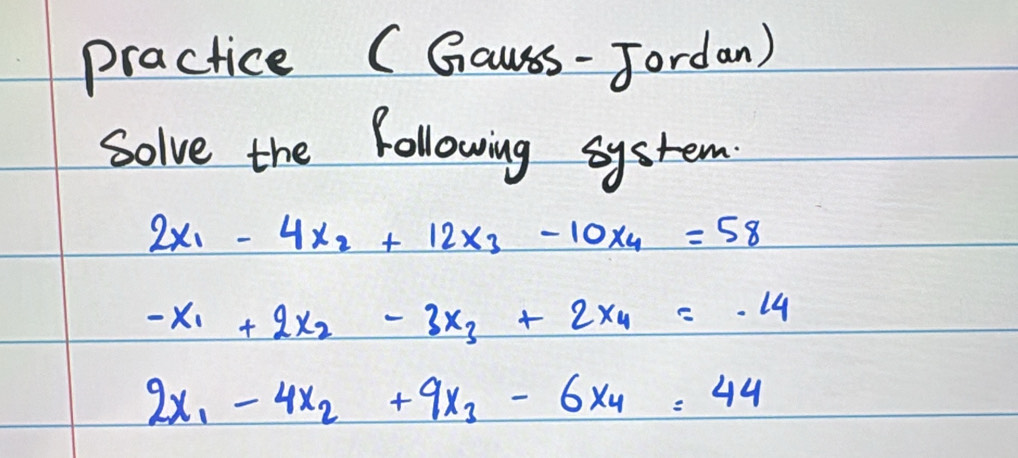 practice (Gauss-Jordan)
Solve the following system.
2x₁ - 4x₂ + 12x₃ - 10x₄ = 58
-x₁ + 2x₂ - 3x₃ + 2x₄ = -14
2x₁ - 4x₂ + 9x₃ - 6x₄ = 44